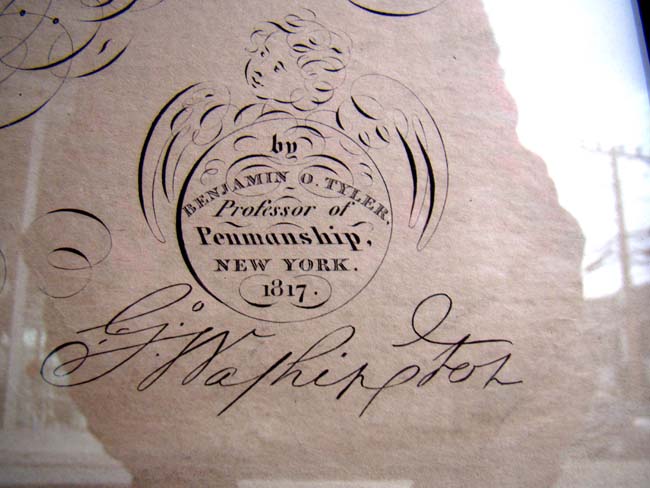 by
BENJAMIN O. TYLER,
Professor of
Penmanship,
NEW YORK.
1817.
G. Washington